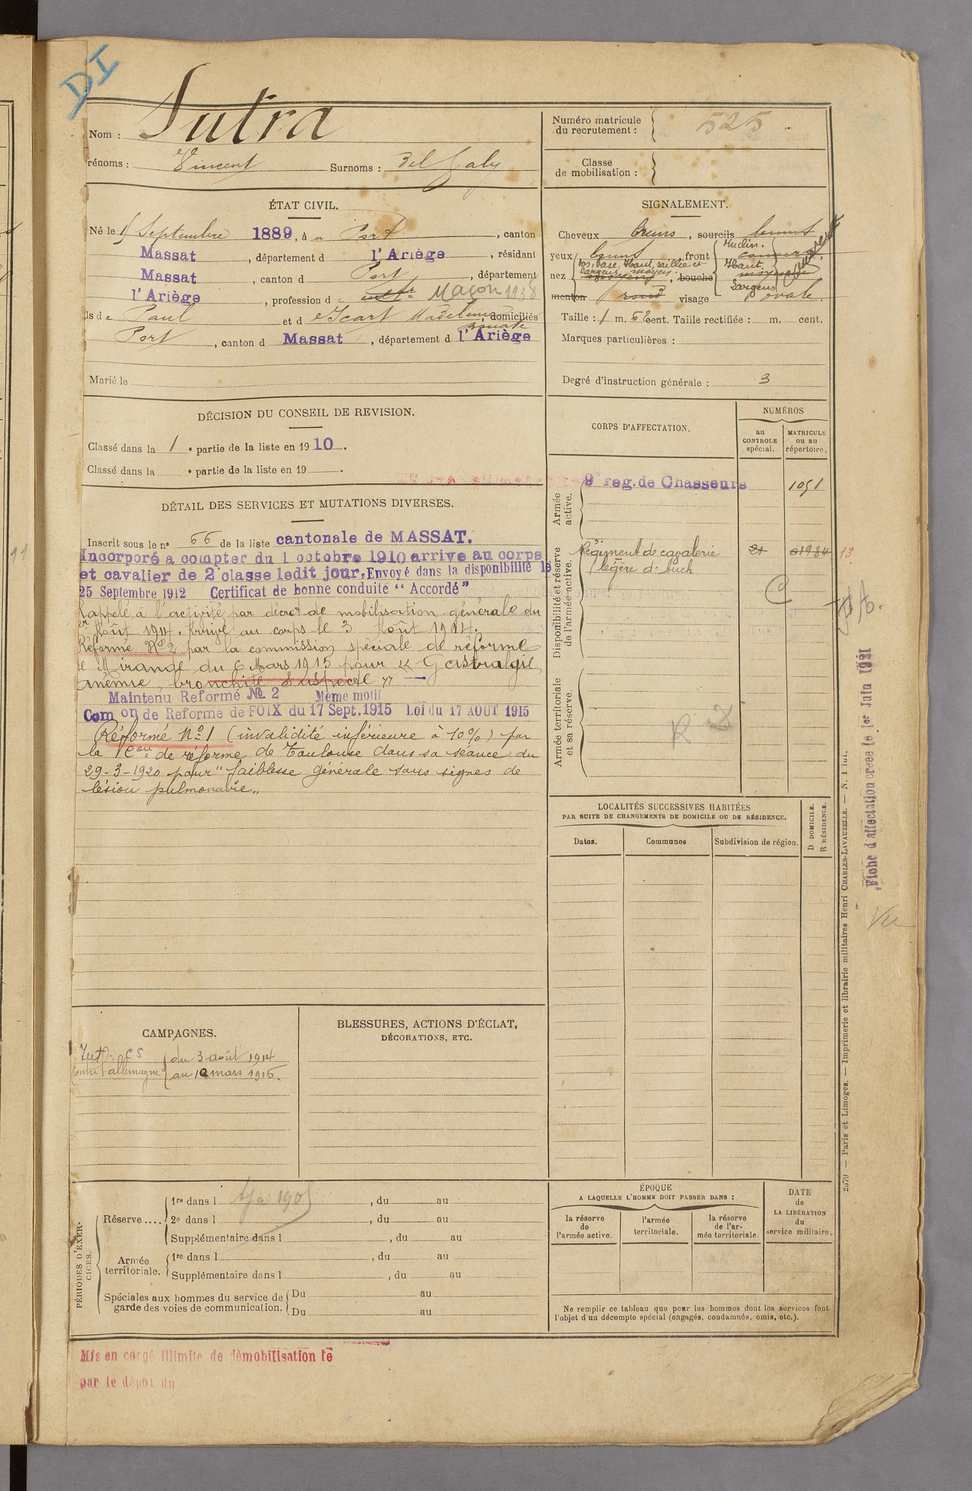 DI
Nom : Sutra
rénoms : Vincent Surnoms : dil Galy
Numéro matricule
du recrutement : 525
Classe
de mobilisation :
ÉTAT CIVIL.
Né le 15 Septembre 1889, à Port, canton
Massat, département d l'Ariège, résidant
Massat, canton d Port, département
l'Ariège, profession d Maçon 1938
ls de Paul et d Icart Madeleine, domiciliés
Port, canton d Massat, département d l'Ariège
Marié le
SIGNALEMENT.
Cheveux bruns, sourcils bruns
yeux bruns, front
nez bouche
menton rond visage ovale.
Taille : 1 m. 62 cent. Taille rectifiée : m. cent.
Marques particulières :
Degré d'instruction générale : 3
DÉCISION DU CONSEIL DE REVISION.
Classé dans la 1e partie de la liste en 1910.
Classé dans la e partie de la liste en 19 .
DÉTAIL DES SERVICES ET MUTATIONS DIVERSES.
Inscrit sous le n° 66 de la liste cantonale de MASSAT.
Incorporé a compter du 1 octobre 1910 arrive au corps
et cavalier de 2e classe ledit jour. Envoyé dans la disponibilité le
25 Septembre 1912 Certificat de bonne conduite "Accordé"
Rappelé à l'activité par décret de mobilisation générale du
1er Août 1914. Arrivé au corps le 3 Août 1914.
Réformé N°2 par la commission spéciale de réforme
de Mirande du 6 Mars 1915 pour « Gastralgie,
anémie, bronchite suspecte » —
Maintenu Reformé № 2 Même motif
Com on de Reforme de FOIX du 17 Sept. 1915 Loi du 17 AOUT 1915
Réformé N°1 (invalidité inférieure à 10%) par
la 1e Con de réforme de Toulouse dans sa séance du
29-3-1920 pour "faiblesse générale sans signes de
lésion pulmonaire„
CORPS D'AFFECTATION.
NUMÉROS
au
CONTROLE
spécial.
MATRICULE
ou au
répertoire.
Armée
active.
9e reg. de Chasseurs 1051
Disponibilité et réserve
de l'armée active.
Régiment de cavalerie
légère d'Auch
13
Armée territoriale
et sa réserve.
R 2
LOCALITÉS SUCCESSIVES HABITÉES
PAR SUITE DE CHANGEMENTS DE DOMICILE OU DE RÉSIDENCE.
Dates.
Communes
Subdivision de région.
D DOMICILE.
R RÉSIDENCE.
Fiche d'affectation créée le 1er Juin 1921
Vu
2579 — Paris et Limoges. — Imprimerie et librairie militaires Henri CHARLES-LAVAUZELLE. — N. 1 int.
CAMPAGNES.
contre l'allemagne
du 3 août 1914
au 10 mars 1915.
BLESSURES, ACTIONS D'ÉCLAT,
DÉCORATIONS, ETC.
PÉRIODES D'EXER-
CICES.
Réserve ....
1re dans l , du au
2e dans l , du au
Supplémentaire dans l , du au
Armée
territoriale.
1re dans l , du au
Supplémentaire dans l , du au
Spéciales aux hommes du service de
garde des voies de communication.
Du au
Du au
ÉPOQUE
A LAQUELLE L'HOMME DOIT PASSER DANS :
la réserve
de
l'armée active.
l'armée
territoriale.
la réserve
de l'ar-
mée territoriale.
DATE
de
LA LIBÉRATION
du
service militaire.
Ne remplir ce tableau que pour les hommes dont les services font
l'objet d'un décompte spécial (engagés, condamnés, omis, etc.).
Mis en congé illimité de démobilisation le
par le dépôt du